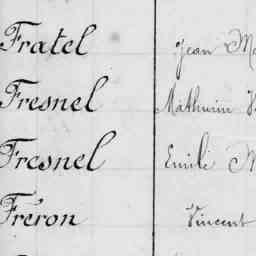 Fratel Jean
Fresnel Mathurin
Fresnel Emile
Fréron Vincent